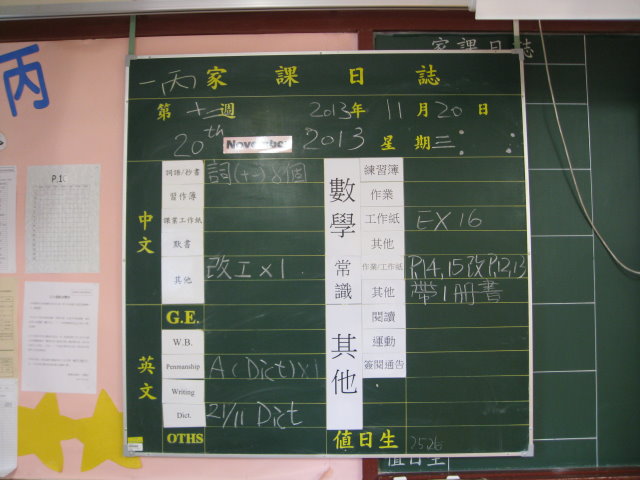 丙
家課日誌
一丙家課日誌
第十二週 2013年 11月20日
20th November 2013 星期三:
中文
詞語/抄書 詞(十一) 8個
習作簿
課業工作紙
默書
其他 改工x1
數學
練習簿
作業
工作紙 EX 16
其他
常識
作業/工作紙 P.14,15改P.12,13
其他 帶1冊書
英文
G.E.
W.B.
Penmanship A(Dict)x1
Writing
Dict. 21/11 Dict
OTHS
其他
閱讀
運動
簽閱通告
值日生 25 26
P.10
值日生